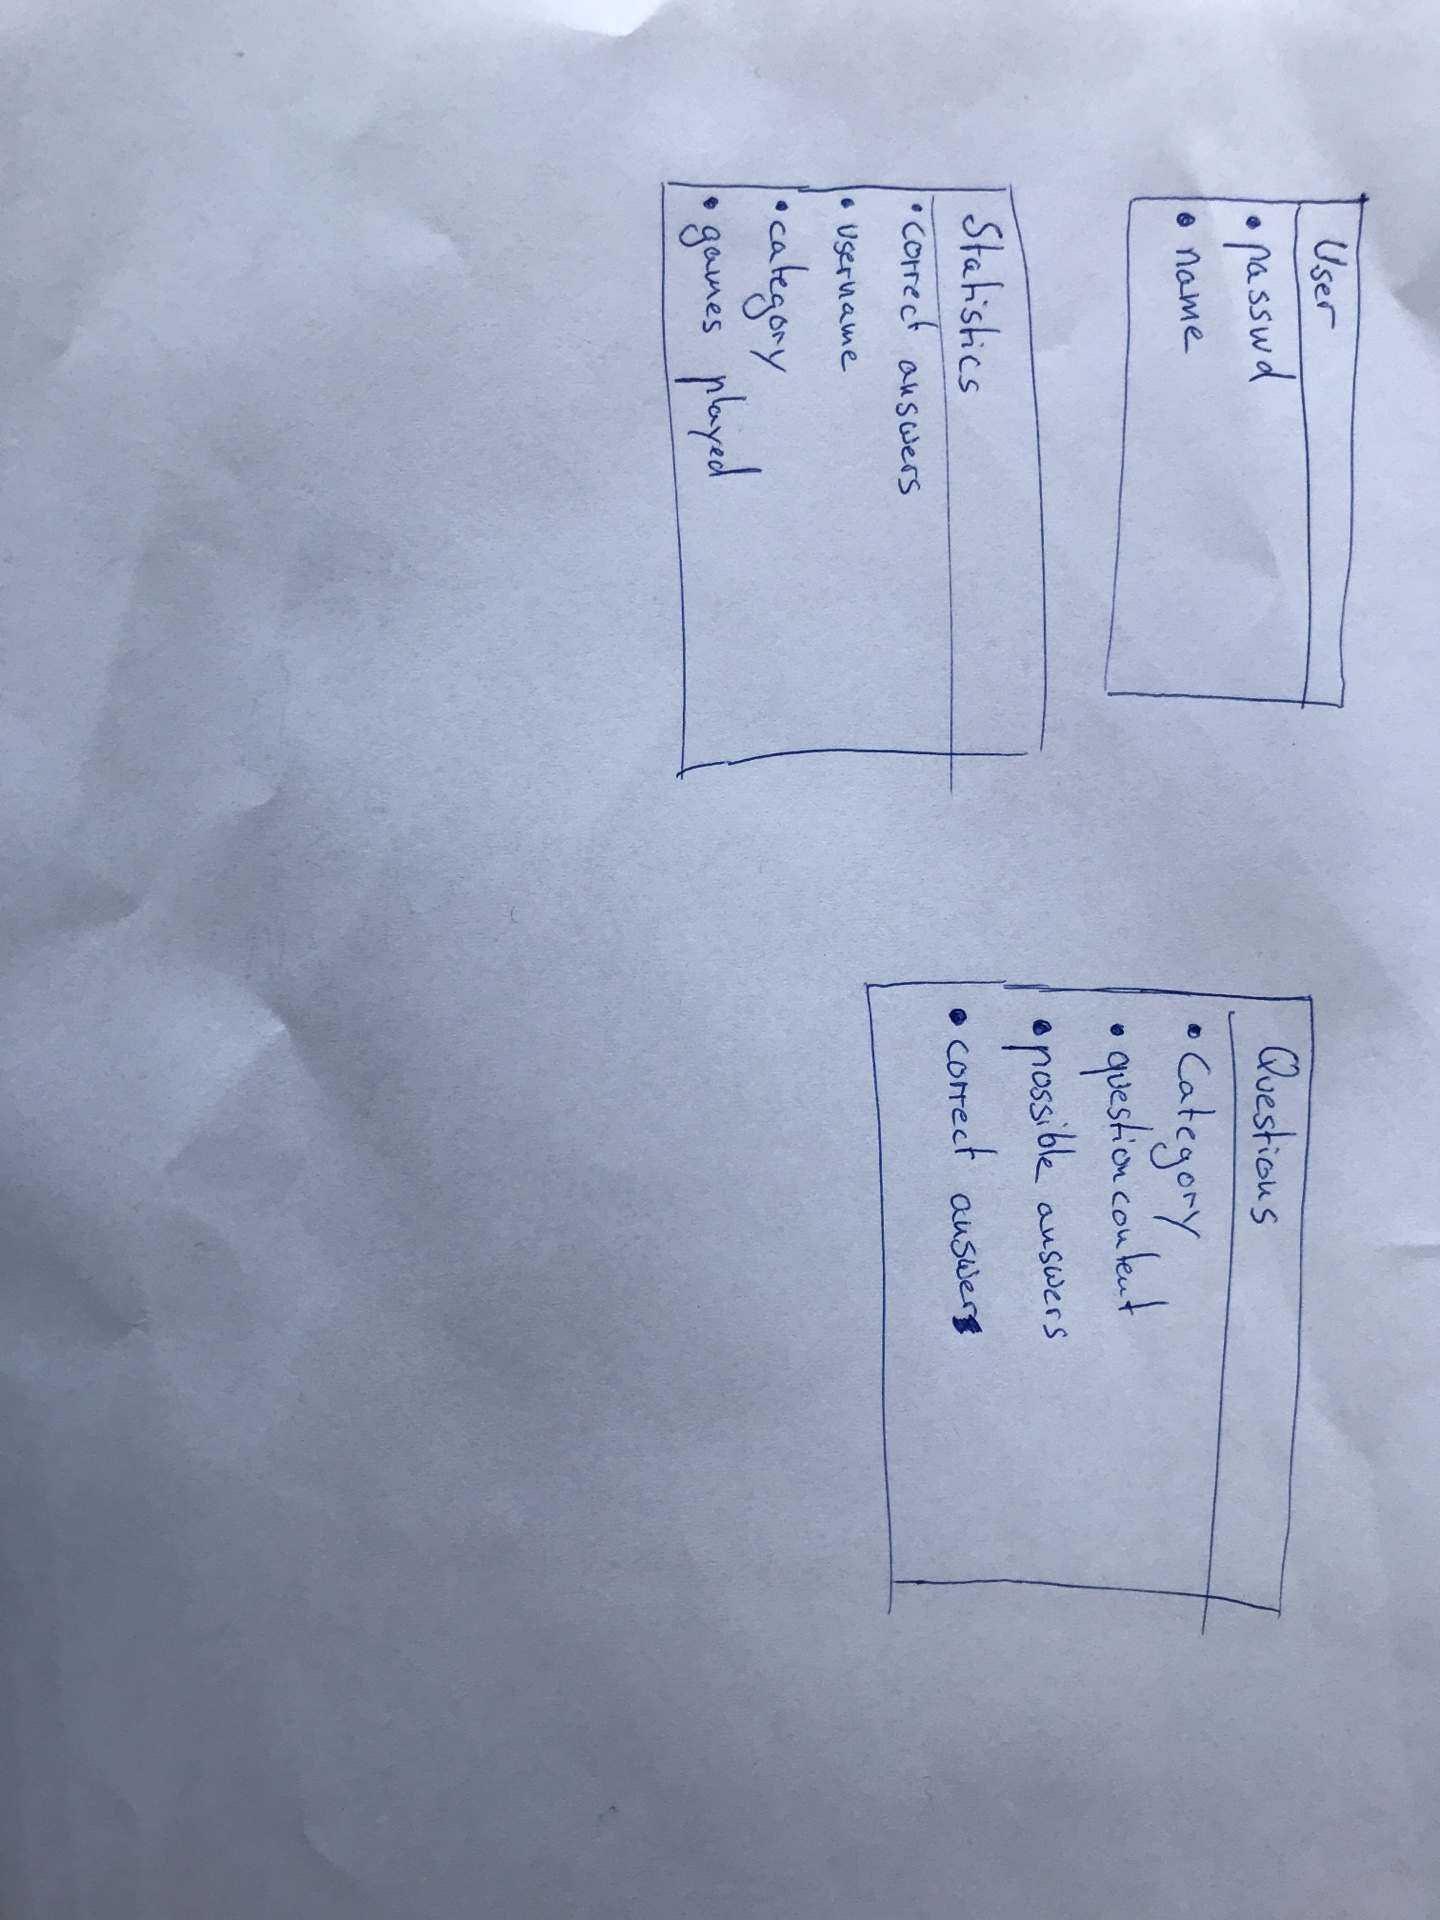 User
• passwd
• name
Statistics
• correct answers
• username
• category
• games played
Questions
• Category
• question content
• possible answers
• correct answers